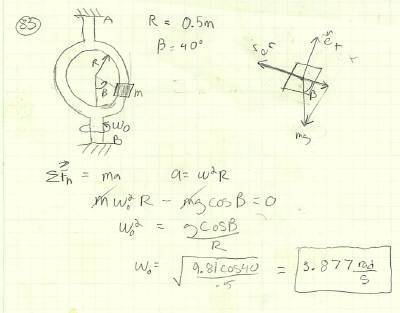 85
A
R = 0.5m
β = 40°
R
β
m
ω₀
B
β
mg
ΣFₙ = ma
a = ω²R
mω₀²R - mg cosβ = 0
ω₀² = g cosβ / R
ω₀ = √(9.81 cos40 / .5) = 3.877 rad/s